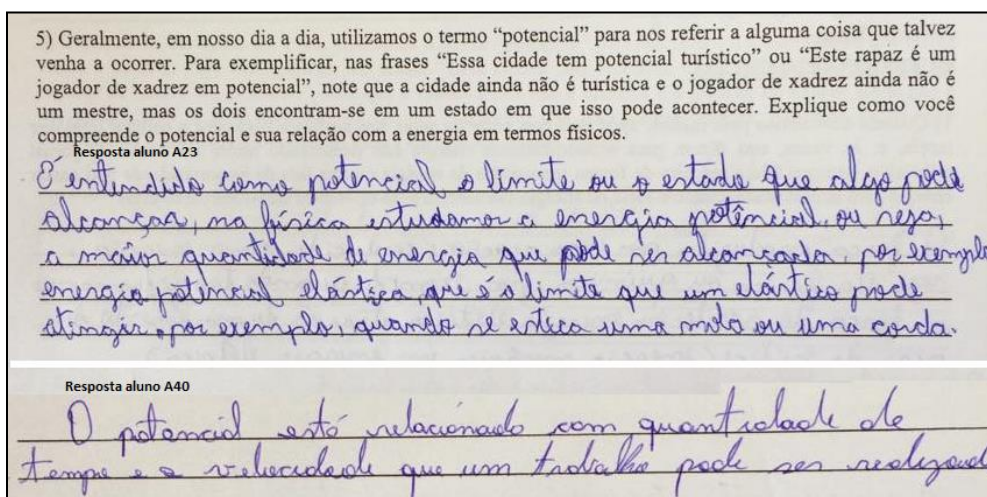 5) Geralmente, em nosso dia a dia, utilizamos o termo “potencial” para nos referir a alguma coisa que talvez
venha a ocorrer. Para exemplificar, nas frases “Essa cidade tem potencial turístico” ou “Este rapaz é um
jogador de xadrez em potencial”, note que a cidade ainda não é turística e o jogador de xadrez ainda não é
um mestre, mas os dois encontram-se em um estado em que isso pode acontecer. Explique como você
compreende o potencial e sua relação com a energia em termos físicos.
Resposta aluno A23
É entendido como potencial o limite ou o estado que algo pode
alcançar, na física estudamos a energia potencial, ou seja,
a maior quantidade de energia que pode ser alcançada, por exemplo
energia potencial elástica, que é o limite que um elástico pode
atingir, por exemplo, quando se estica uma mola ou uma corda.
Resposta aluno A40
O potencial está relacionado com quantidade de
tempo e a velocidade que um trabalho pode ser realizad